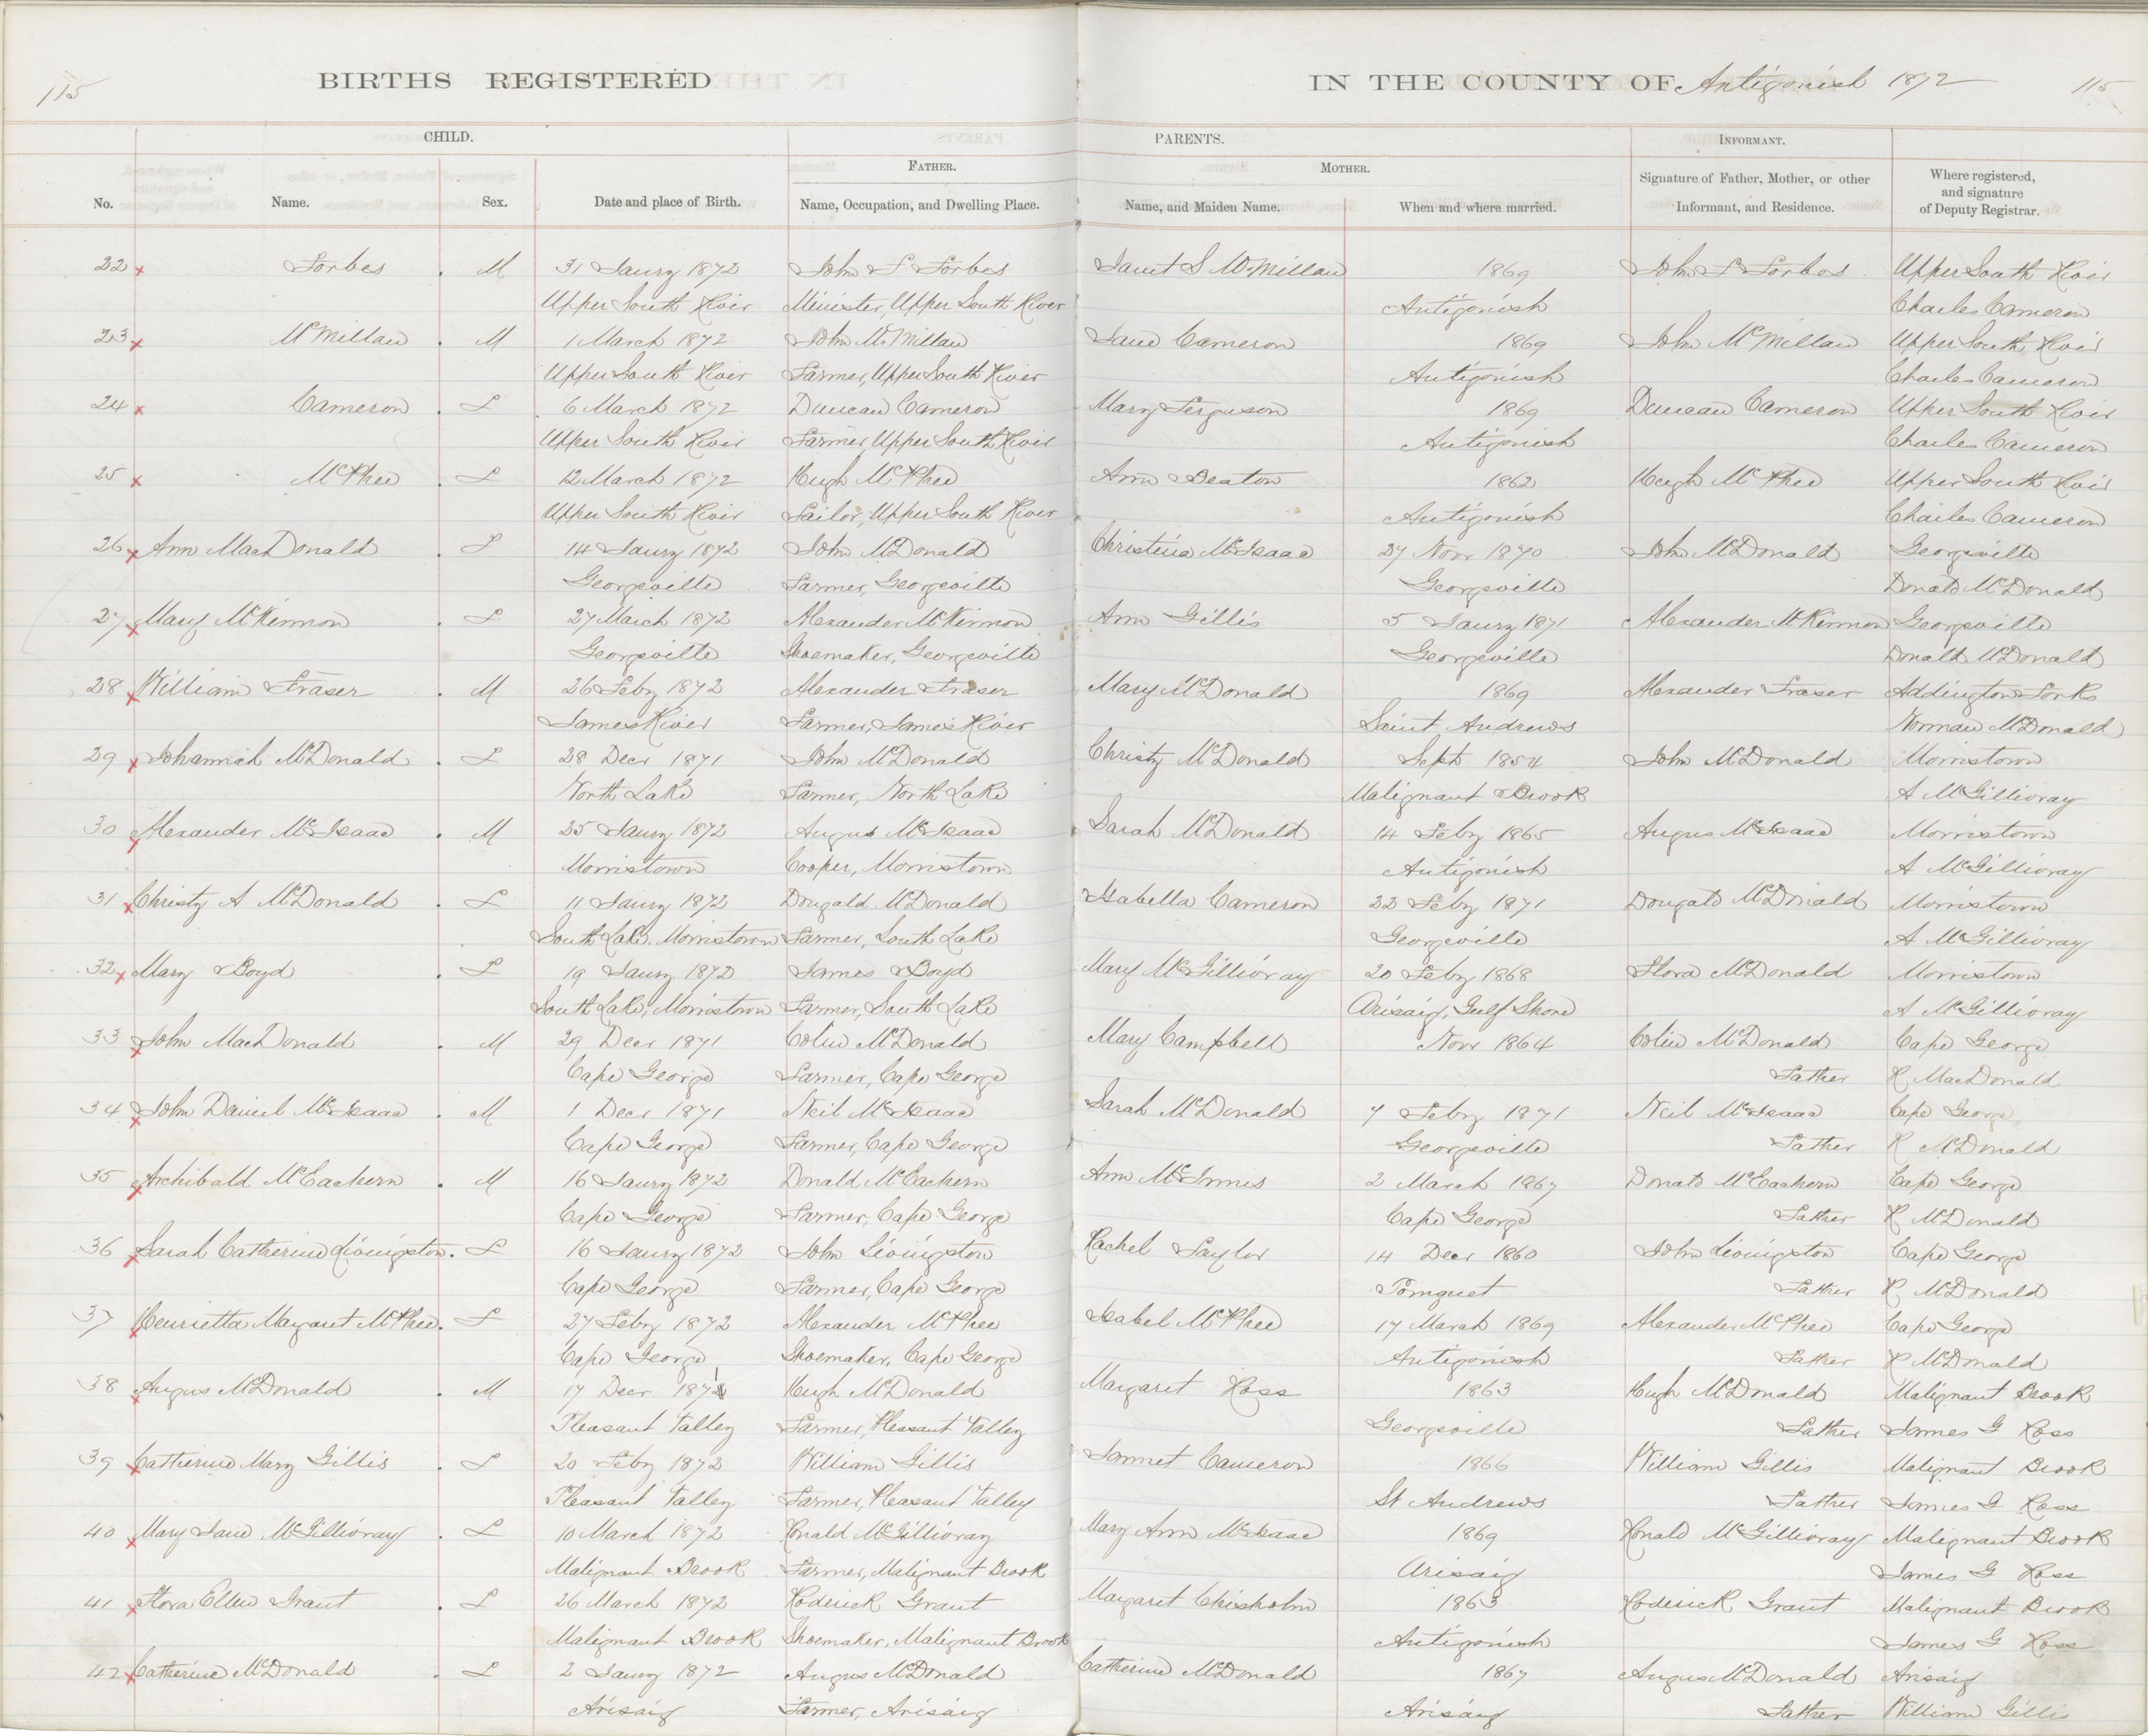 115 BIRTHS REGISTERED IN THE COUNTY OF Antigonish 1872 115
CHILD. PARENTS. INFORMANT.
FATHER. MOTHER.
No. Name. Sex. Date and place of Birth. Name, Occupation, and Dwelling Place. Name, and Maiden Name. When and where married. Signature of Father, Mother, or other Informant, and Residence. Where registered, and signature of Deputy Registrar.
22 Forbes M 31 Jany 1872 John F Forbes Janet S McMillan 1869 John F Forbes Upper South River
Upper South River Minister, Upper South River Antigonish Charles Cameron
23 McMillan M 1 March 1872 John McMillan Jane Cameron 1869 John McMillan Upper South River
Upper South River Farmer, Upper South River Antigonish Charles Cameron
24 Cameron F 6 March 1872 Duncan Cameron Mary Ferguson 1869 Duncan Cameron Upper South River
Upper South River Farmer, Upper South River Antigonish Charles Cameron
25 McPhee F 12 March 1872 Hugh McPhee Ann Beaton 1862 Hugh McPhee Upper South River
Upper South River Sailor, Upper South River Antigonish Charles Cameron
26 Ann MacDonald F 14 Jany 1872 John McDonald Christina McIsaac 27 Novr 1870 John McDonald Georgeville
Georgeville Farmer, Georgeville Georgeville Donald McDonald
27 Mary McKinnon F 27 March 1872 Alexander McKinnon Ann Gillis 5 Jany 1871 Alexander McKinnon Georgeville
Georgeville Shoemaker, Georgeville Georgeville Donald McDonald
28 William Fraser M 26 Feby 1872 Alexander Fraser Mary McDonald 1869 Alexander Fraser Addington Forks
James River Farmer, James River Saint Andrews Norman McDonald
29 Johannah McDonald F 28 Decr 1871 John McDonald Christy McDonald Sept 1854 John McDonald Morristown
North Lake Farmer, North Lake Malignant Brook A McGillivray
30 Alexander McIsaac M 25 Jany 1872 Angus McIsaac Sarah McDonald 14 Feby 1865 Angus McIsaac Morristown
Morristown Cooper, Morristown Antigonish A McGillivray
31 Christy A McDonald F 11 Jany 1872 Dougald McDonald Isabella Cameron 22 Feby 1871 Dougald McDonald Morristown
South Lake, Morristown Farmer, South Lake Georgeville A McGillivray
32 Mary Boyd F 19 Jany 1872 James Boyd Mary McGillivray 20 Feby 1868 Flora McDonald Morristown
South Lake, Morristown Farmer, South Lake Arisaig, Gulf Shore A McGillivray
33 John MacDonald M 29 Decr 1871 Colin McDonald Mary Campbell Novr 1864 Colin McDonald Cape George
Cape George Farmer, Cape George Father R MacDonald
34 John Daniel McIsaac M 1 Decr 1871 Neil McIsaac Sarah McDonald 7 Feby 1871 Neil McIsaac Cape George
Cape George Farmer, Cape George Georgeville Father R McDonald
35 Archibald McEachern M 16 Jany 1872 Donald McEachern Ann McInnis 2 March 1867 Donald McEachern Cape George
Cape George Farmer, Cape George Cape George Father R McDonald
36 Sarah Catherine Livingston F 16 Jany 1872 John Livingston Rachel Taylor 14 Decr 1860 John Livingston Cape George
Cape George Farmer, Cape George Pomquet Father R McDonald
37 Henrietta Margaret McPhee F 27 Feby 1872 Alexander McPhee Isabel McPhee 17 March 1869 Alexander McPhee Cape George
Cape George Shoemaker, Cape George Antigonish Father R McDonald
38 Angus McDonald M 17 Decr 1871 Hugh McDonald Margaret Ross 1863 Hugh McDonald Malignant Brook
Pleasant Valley Farmer, Pleasant Valley Georgeville Father James G Ross
39 Catherine Mary Gillis F 20 Feby 1872 William Gillis Jannet Cameron 1866 William Gillis Malignant Brook
Pleasant Valley Farmer, Pleasant Valley St Andrews Father James G Ross
40 Mary Jane McGillivray F 10 March 1872 Ronald McGillivray Mary Ann McIsaac 1869 Ronald McGillivray Malignant Brook
Malignant Brook Farmer, Malignant Brook Arisaig James G Ross
41 Flora Ellen Grant F 26 March 1872 Roderick Grant Margaret Chisholm 1863 Roderick Grant Malignant Brook
Malignant Brook Shoemaker, Malignant Brook Antigonish James G Ross
42 Catherine McDonald F 2 Jany 1872 Angus McDonald Catherine McDonald 1867 Angus McDonald Arisaig
Arisaig Farmer, Arisaig Arisaig Father William Gillis